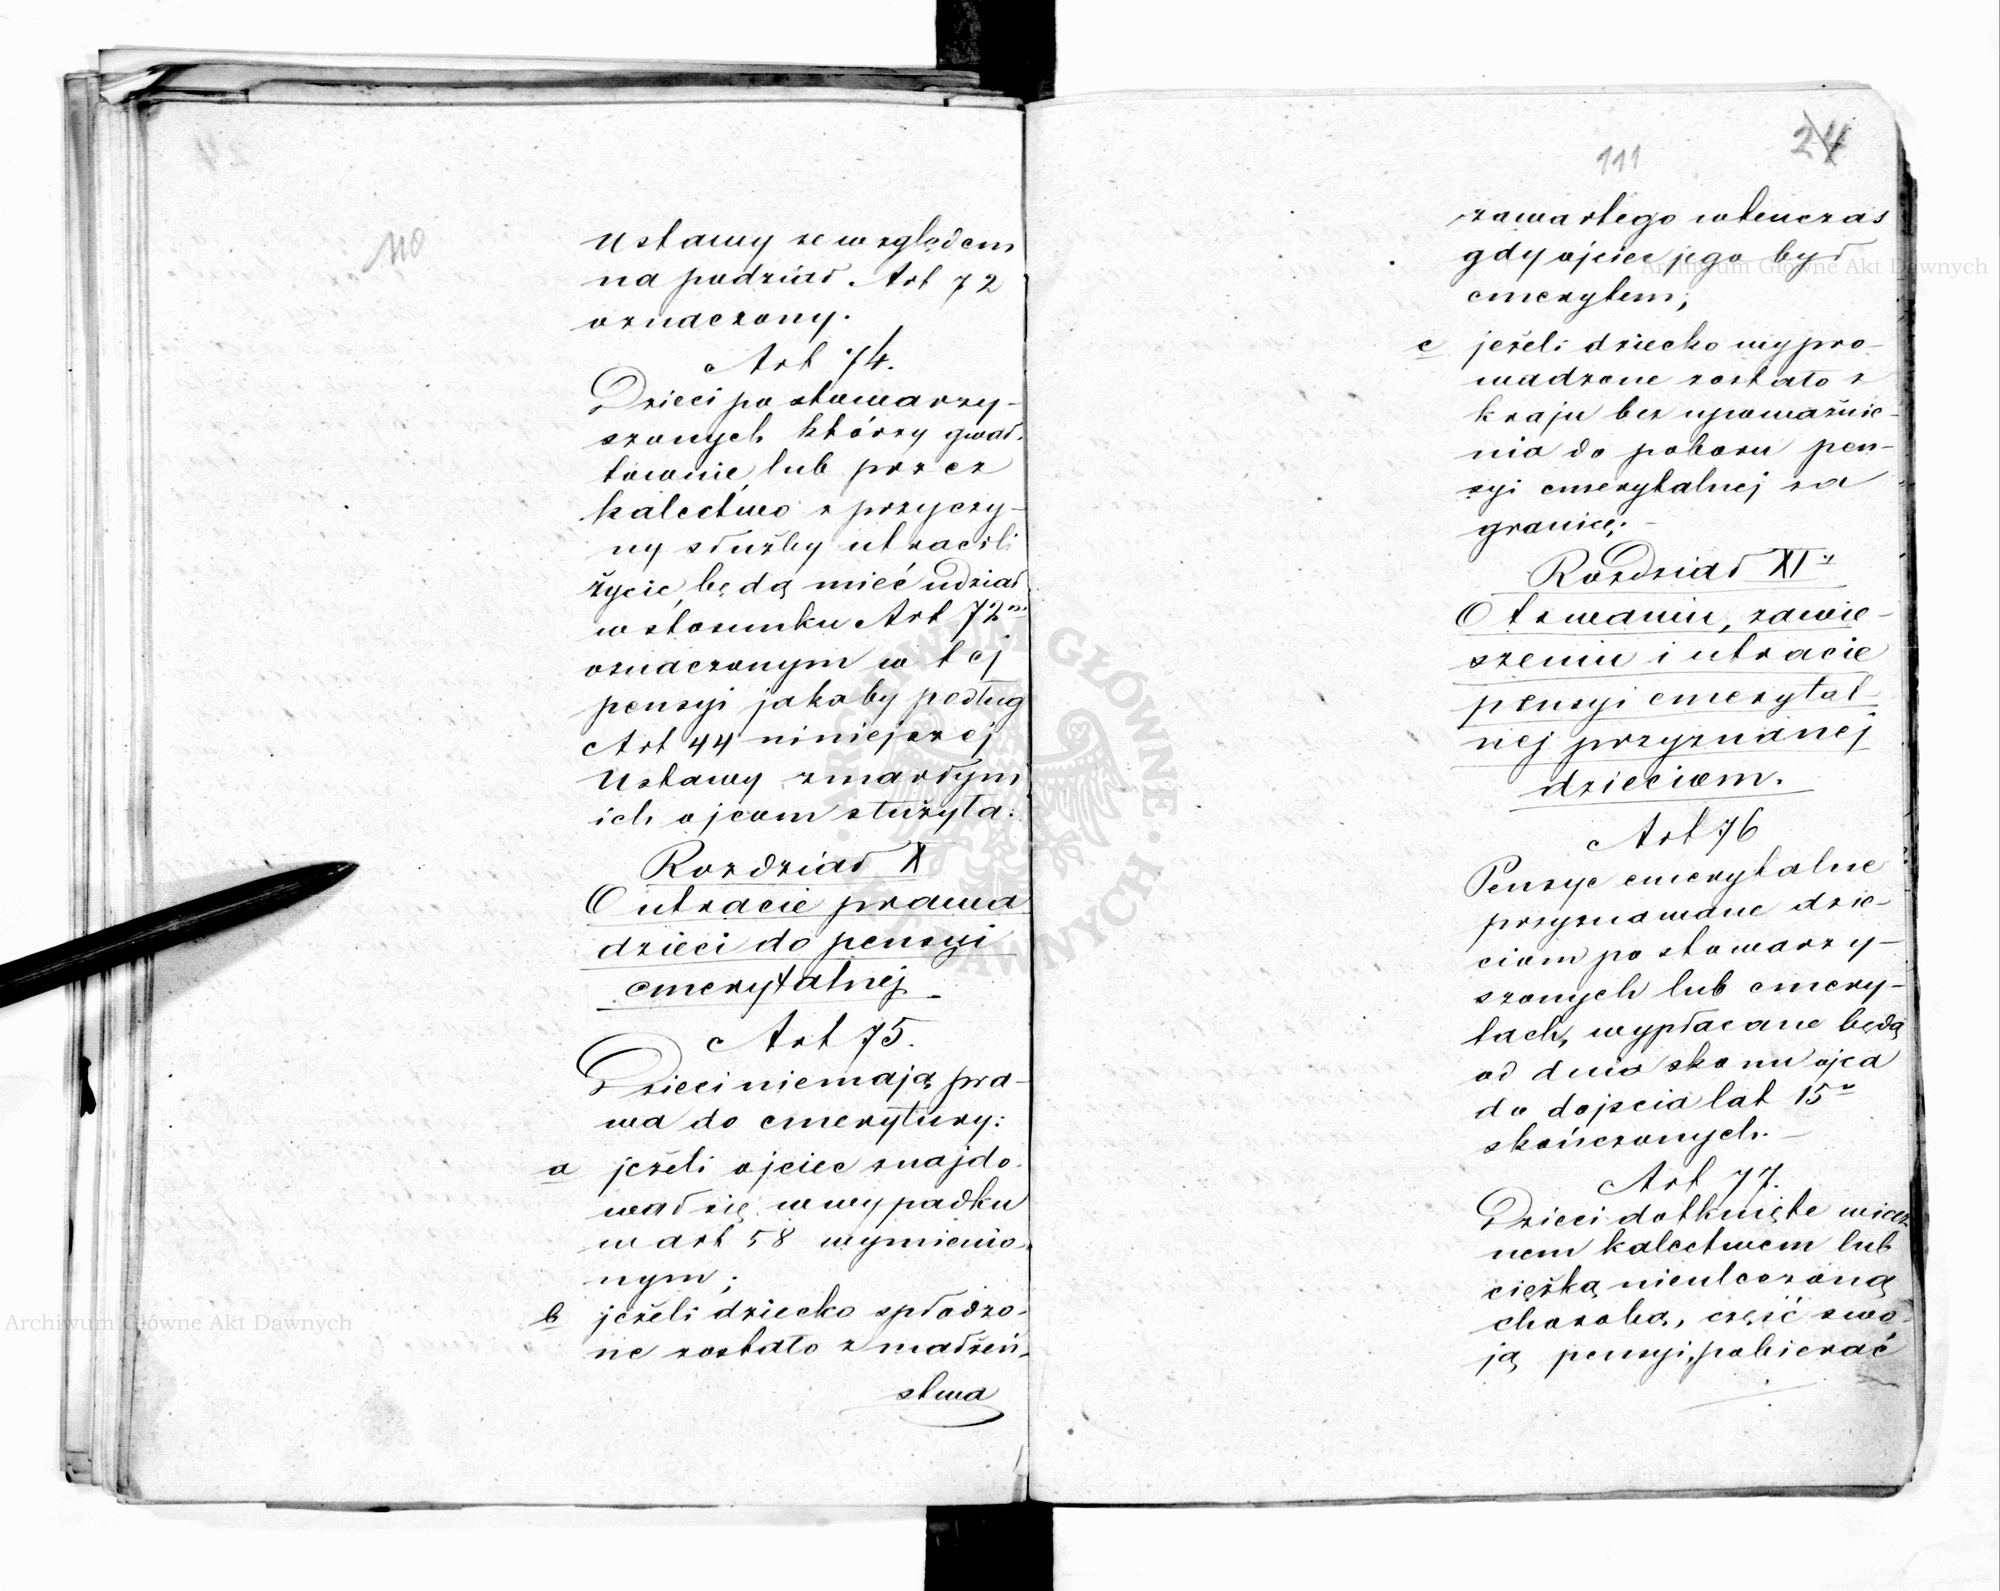 110
Ustawy ze względem
na podział. Art 72
oznaczony.
Art 74.
Dzieci po stowarzy-
szonych którzy gwał-
townie, lub przez
kalectwo z przyczy-
ny służby utracili
życie, będą mieć udział
w stosunku Art 72m
oznaczonym w tej
pensyi jakaby podług
Art 44 niniejszej
Ustawy zmarłym
ich ojcom służyła:
Rozdział X
O utracie prawa
dzieci do pensyi
emerytalnej
Art 75.
Dzieci niemają pra-
wa do emerytury:
a jeżeli ojciec znajdo-
wał się w wypadku
w art 58 wymienio-
nym;
b jeżeli dziecko spłodzo-
ne zostało z małżeń-
stwa
111
24
zawartego wtenczas
gdy ojciec jego był
emerytem;
c jeżeli dziecko wypro-
wadzone zostało z
kraju bez upoważnie-
nia do poboru pen-
syi emerytalnej za
granicę.
Rozdział XI
O trwaniu, zawie-
szeniu i utracie
pensyi emerytal-
nej przyznanej
dzieciom.
Art 76
Pensye emerytalne
przyznawane dzie-
ciom po stowarzy-
szonych lub emery-
tach, wypłacane będą
od dnia skonu ojca
do dojścia lat 15u
skończonych.
Art 77.
Dzieci dotknięte wiecz
nem kalectwem lub
ciężką nieuleczoną
chorobą, część swo-
ją pensyi, pobierać
Archiwum Główne Akt Dawnych
Archiwum Główne Akt Dawnych
ARCHIWUM GŁÓWNE AKT DAWNYCH